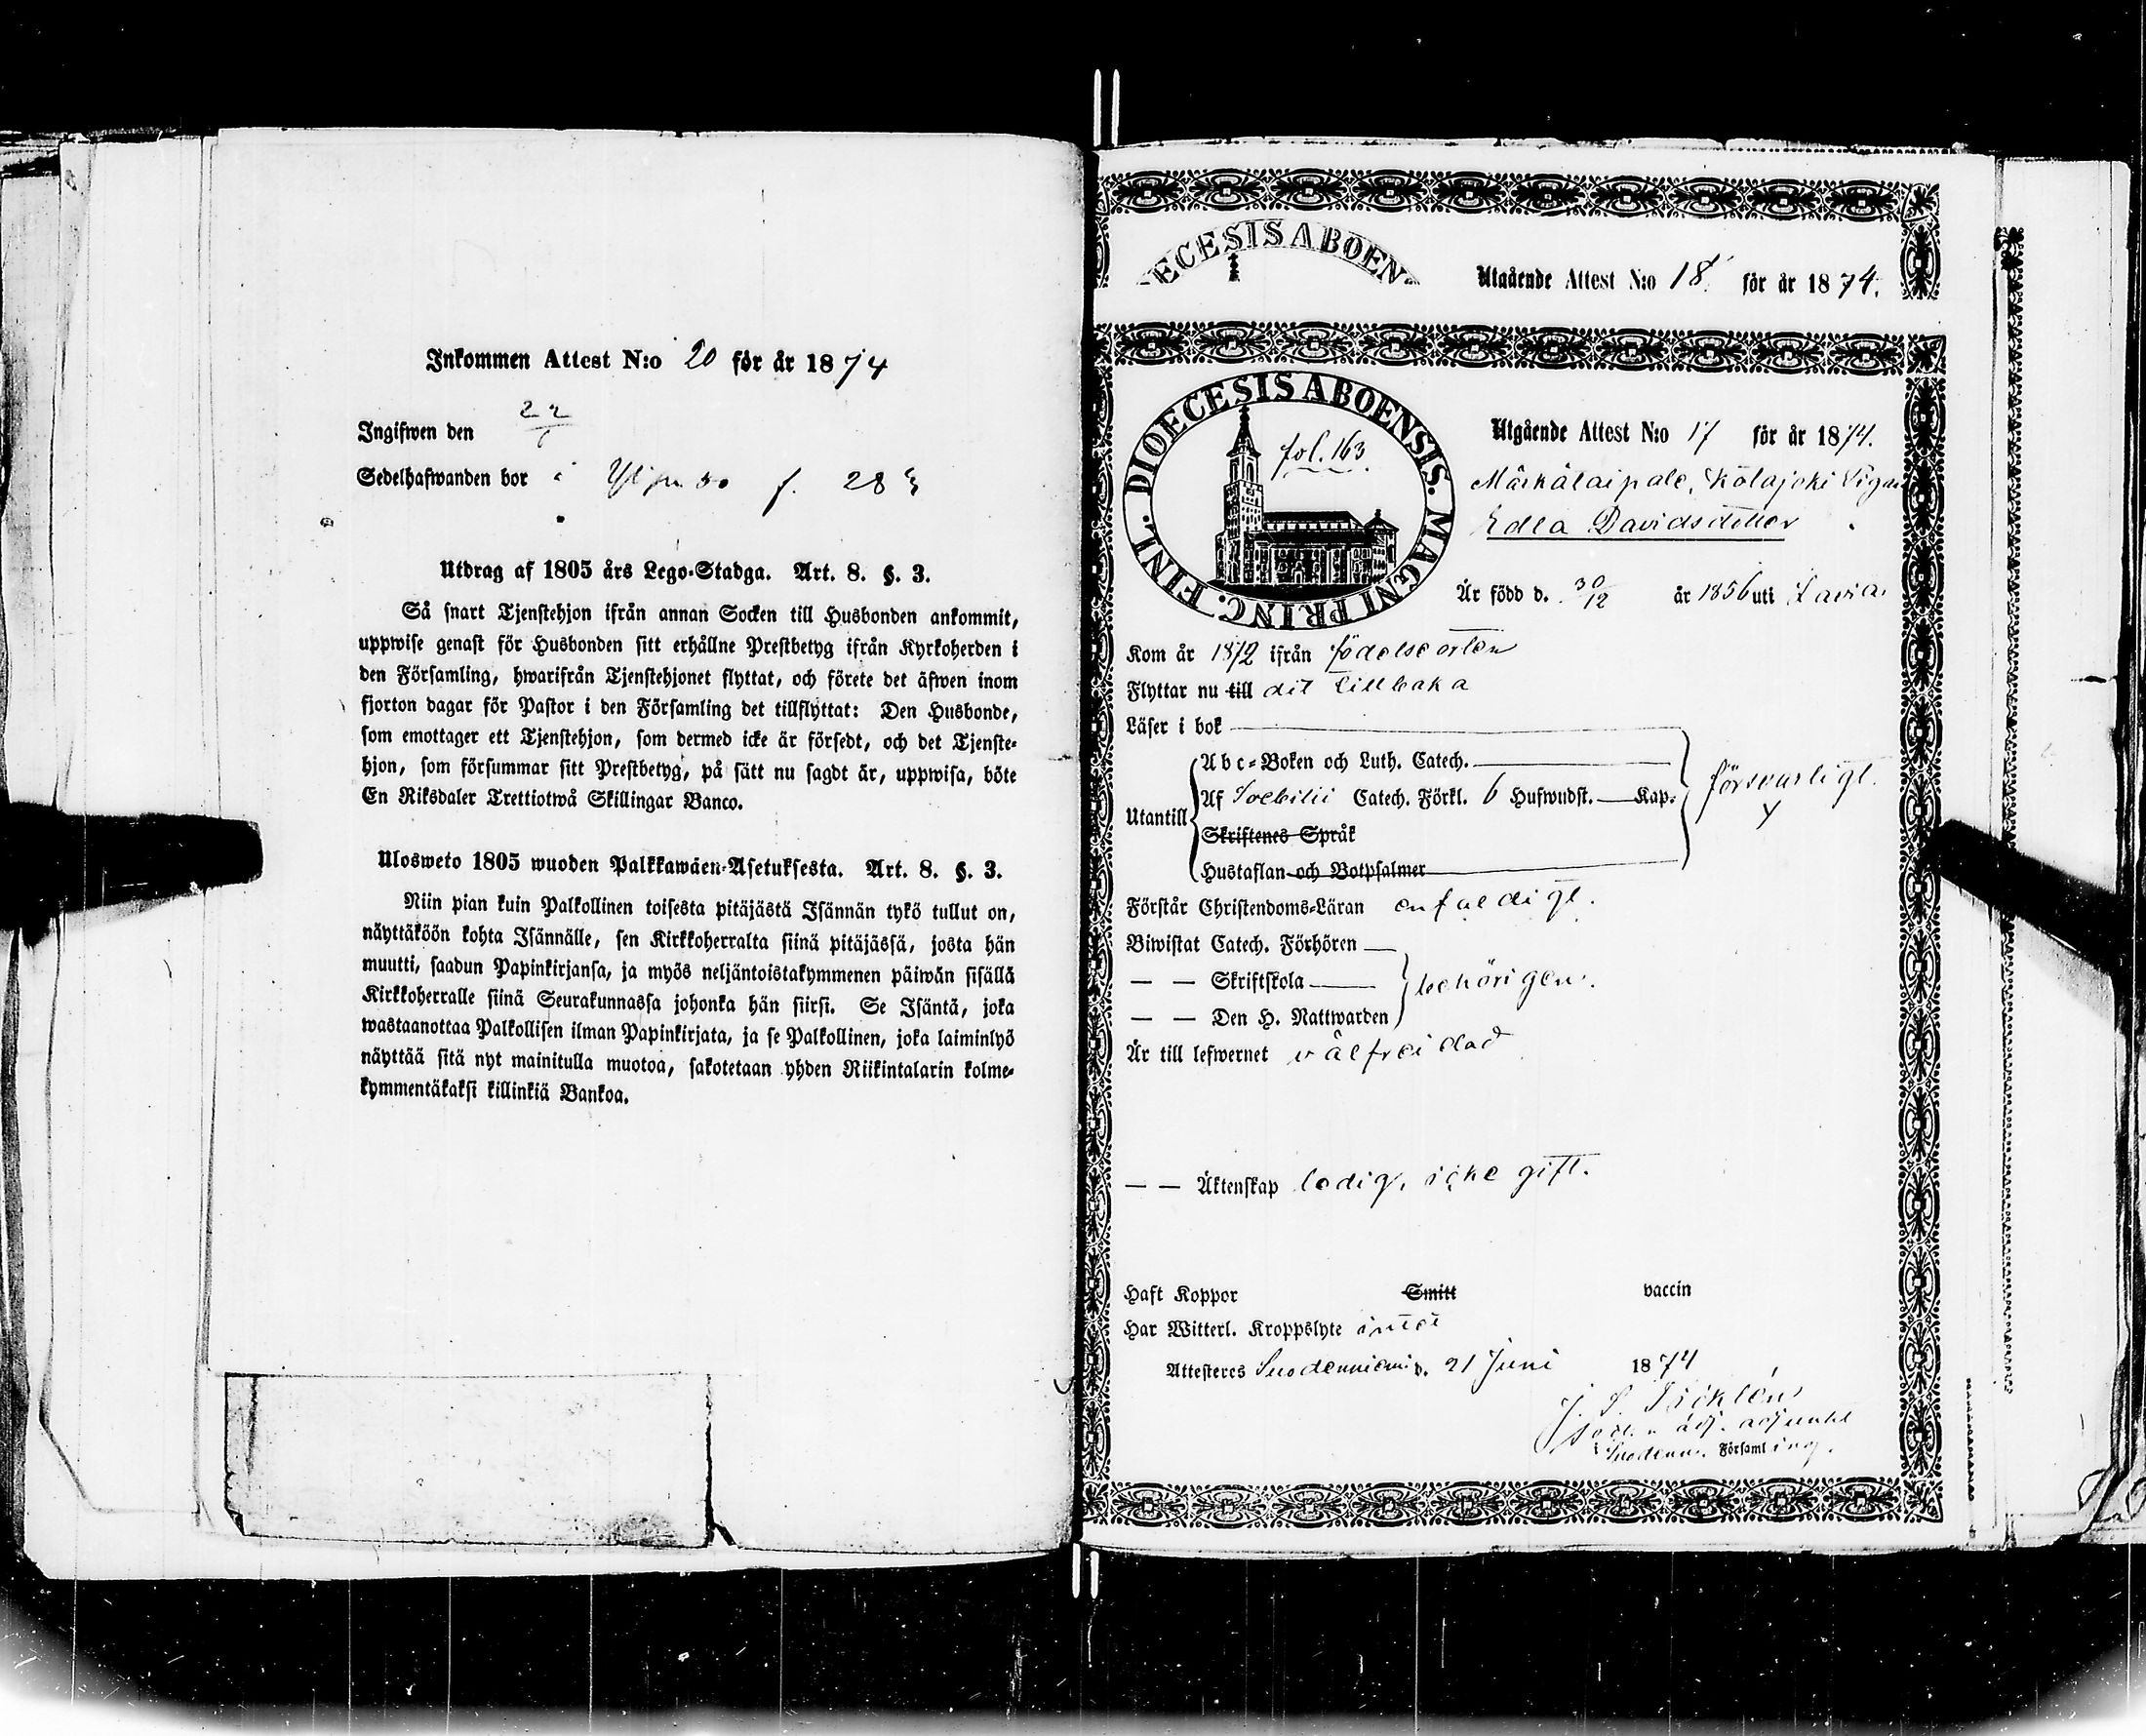 Inkommen Attest N:o 20 för år 1874
Ingifwen den 22/6
Sedelhafwanden bor i f. 283
Utdrag af 1805 års Lego-Stadga. Art. 8. §. 3.
Så snart Tjenstehjon ifrån annan Socken till Husbonden ankommit,
uppwise genast för Husbonden sitt erhållne Prestbetyg ifrån Kyrkoherden i
den Församling, hwarifrån Tjenstehjonet flyttat, och förete det äfwen inom
fjorton dagar för Pastor i den Församling det tillflyttat: Den Husbonde,
som emottager ett Tjenstehjon, som dermed icke är försedt, och det Tjenste-
hjon, som försummar sitt Prestbetyg, på sätt nu sagdt är, uppwisa, böte
En Riksdaler Trettiotwå Skillingar Banco.
Ulosweto 1805 wuoden Palkkawäen-Asetuksesta. Art. 8. §. 3.
Niin pian kuin Palkollinen toisesta pitäjästä Isännän tykö tullut on,
näyttäköön kohta Isännälle, sen Kirkkoherralta siinä pitäjässä, josta hän
muutti, saadun Papinkirjansa, ja myös neljäntoistakymmenen päiwän sisällä
Kirkkoherralle siinä Seurakunnassa johonka hän siirsi. Se Isäntä, joka
wastaanottaa Palkollisen ilman Papinkirjata, ja se Palkollinen, joka laiminlyö
näyttää sitä nyt mainitulla muotoa, sakotetaan yhden Riikintalarin kolme-
kymmentäkaksi killinkiä Bankoa.
ECESIS ABOEN
Utgående Attest N:o 18 för år 1874.
DIOECESIS ABOENSIS. MAGNI PRINC. FINL.
fol. 163
Utgående Attest N:o 17 för år 1874.
Märkätaipale, Kolajoki Pigan
Edla Davidsdotter
Är född d. 30/12 år 1856 uti Lavia.
Kom år 1872 ifrån födelseorten
Flyttar nu till dit tillbaka
Läser i bok
Utantill
Abc-Boken och Luth. Catech.
Af Svebilii Catech. Förkl. 6 Hufwudst. Kap.
försvarligt.
Skriftenes Språk
Hustaflan och Botpsalmer
Förstår Christendoms-Läran enfaldigt.
Biwistat Catech. Förhören
— — Skriftskola
behörigen.
— — Den H. Nattwarden
Är till lefwernet välfreidad
— — Äktenskap ledig, icke gift.
Haft Koppor Smitt vaccin
Har Witterl. Kroppslyte intet
Attesteres Suodenniemi d. 21 Juni 1874
adjunkt
i Suodenn. Församling.